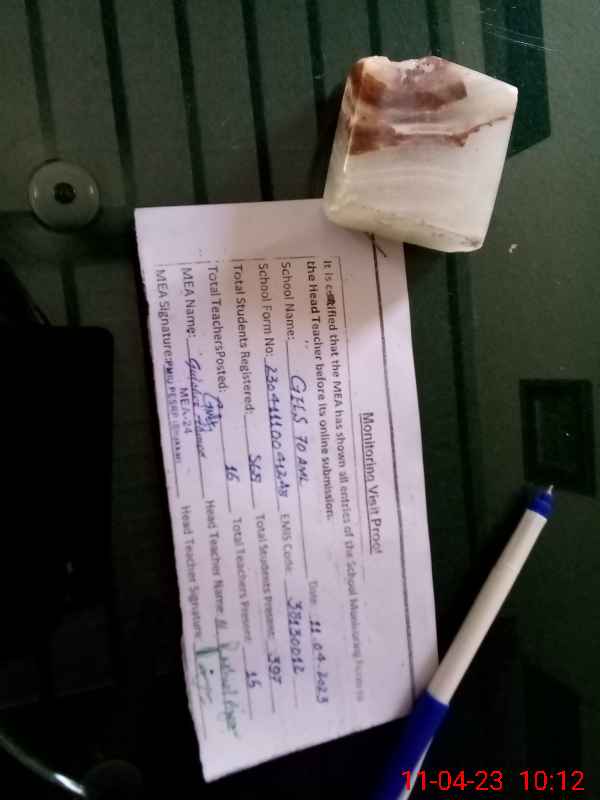 Monitoring Visit Proof
It is certified that the MEA has shown all entries of the School Monitoring Form to
the Head Teacher before its online submission.
Date: 11.04.2023
School Name: GHS 70 AML EMIS Code: 38130012
School Form No: Total Students Present: 397
Total Students Registered: 568 Total Teachers Present: 15
Total TeachersPosted: 16 Head Teacher Name
MEA Name: Head Teacher Signature
MEA-24
MEA Signature: PMIU PESRP (Bhakkar)
11-04-23 10:12